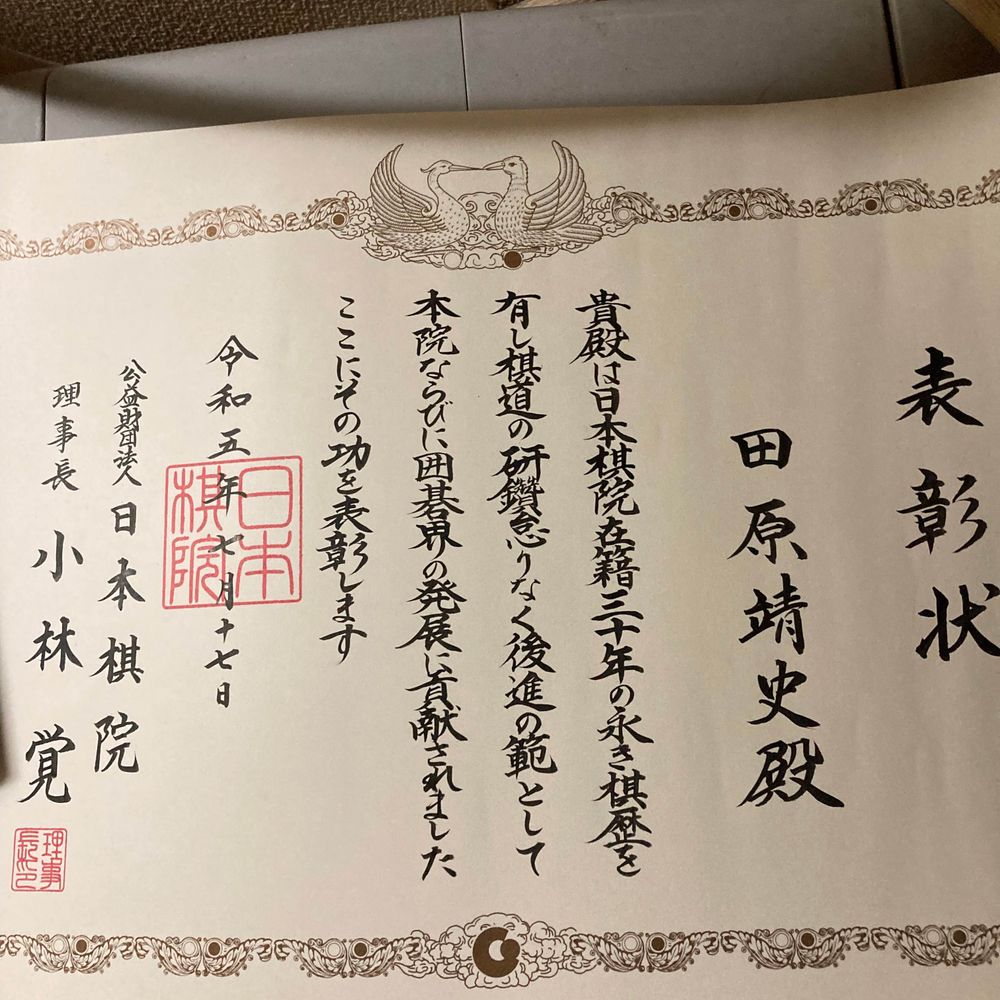 表彰状
田原靖史殿
貴殿は日本棋院在籍三十年の永き棋歴を
有し棋道の研鑽怠りなく後進の範として
本院ならびに囲碁界の発展に貢献されました
ここにその功を表彰します
令和五年七月十七日
日本
棋院
公益財団法人日本棋院
理事長 小林覚
理事
長之印